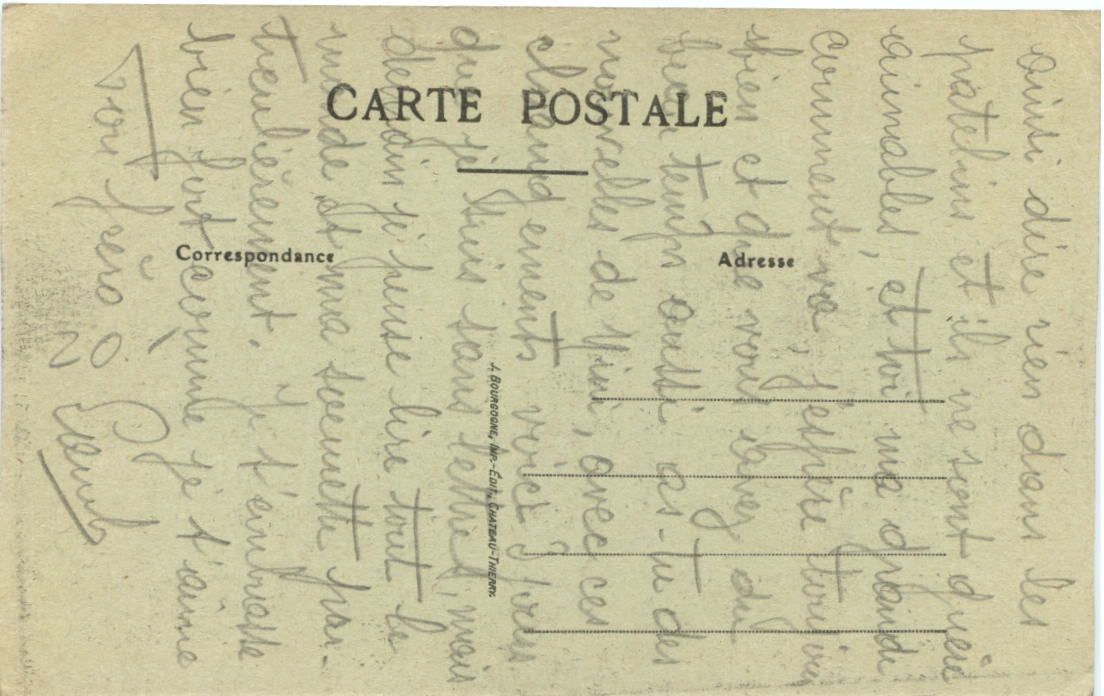 CARTE POSTALE
Correspondance
Adresse
J. BOURGOGNE, IMP.-ÉDIT., CHATEAU-THIERRY.
ainsi dire rien dans les
patelins et ils ne sont guère
aimables, et toi ma grande
comment va, j'espère
bien et que vous avez du
beau temps aussi as-tu des
nouvelles de, avec ces
changements voici jours
que je suis sans lettre, mais
demain je pense lire tout le
monde et ma soeurette par-
ticulièrement. Je t'embrasse
bien fort comme je t'aime
Ton frèro